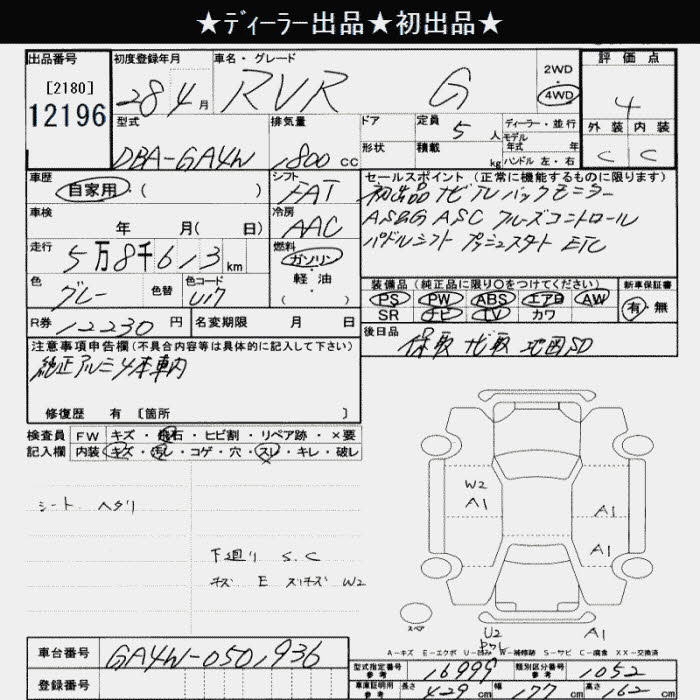 ★ディーラー出品★初出品★
出品番号 初度登録年月 車名・グレード 2WD 評価点
[2180] 12196 28 4月 RVR G 4WD 4
型式 排気量 ドア 定員 5人 ディーラー・並行 外装 内装
モデル年式 年
DBA-GA4W 1800cc 形状 積載 kg ハンドル 左・右 C C
車歴 シフト セールスポイント(正常に機能するものに限ります)
自家用・( ) FAT 初出品 ナビ TV バックモニター
車検 冷房 ASG ASC クルーズコントロール
年 月( 日) AAC パドルシフト プッシュスタート ETC
走行 5万8千613km 燃料 ガソリン・軽油・( )
装備品(純正品に限り○をつけてください) 新車保証書
色 色替 色コード PS PW ABS エアB AW 有・無
グレー U17 SR ナビ TV カワ
R券 12230円 名変期限 月 日 後日品
保取 ナビ取 地図SD
注意事項申告欄(不具合内容等は具体的に記入して下さい)
純正アルミ4本車内
修復歴 有 [箇所 ]
検査員 FW キズ・飛石・ヒビ割・リペア跡・×要
記入欄 内装 キズ・汚レ・コゲ・穴・スレ・キレ・破レ
W2
A1 A1
シート ヘタリ
A1
下廻り S.C
キズ E スリキズ W2
スペア U2 A1
A-キズ E-エクボ U-凹み W-補修跡 S-サビ C-腐食 XX-交換済
車台番号 GA4W-0501936
型式指定番号 参考 16999 類別区分番号 参考 1052
登録番号 車庫証明用 参考 長さ 429cm 幅 177cm 高さ 162cm